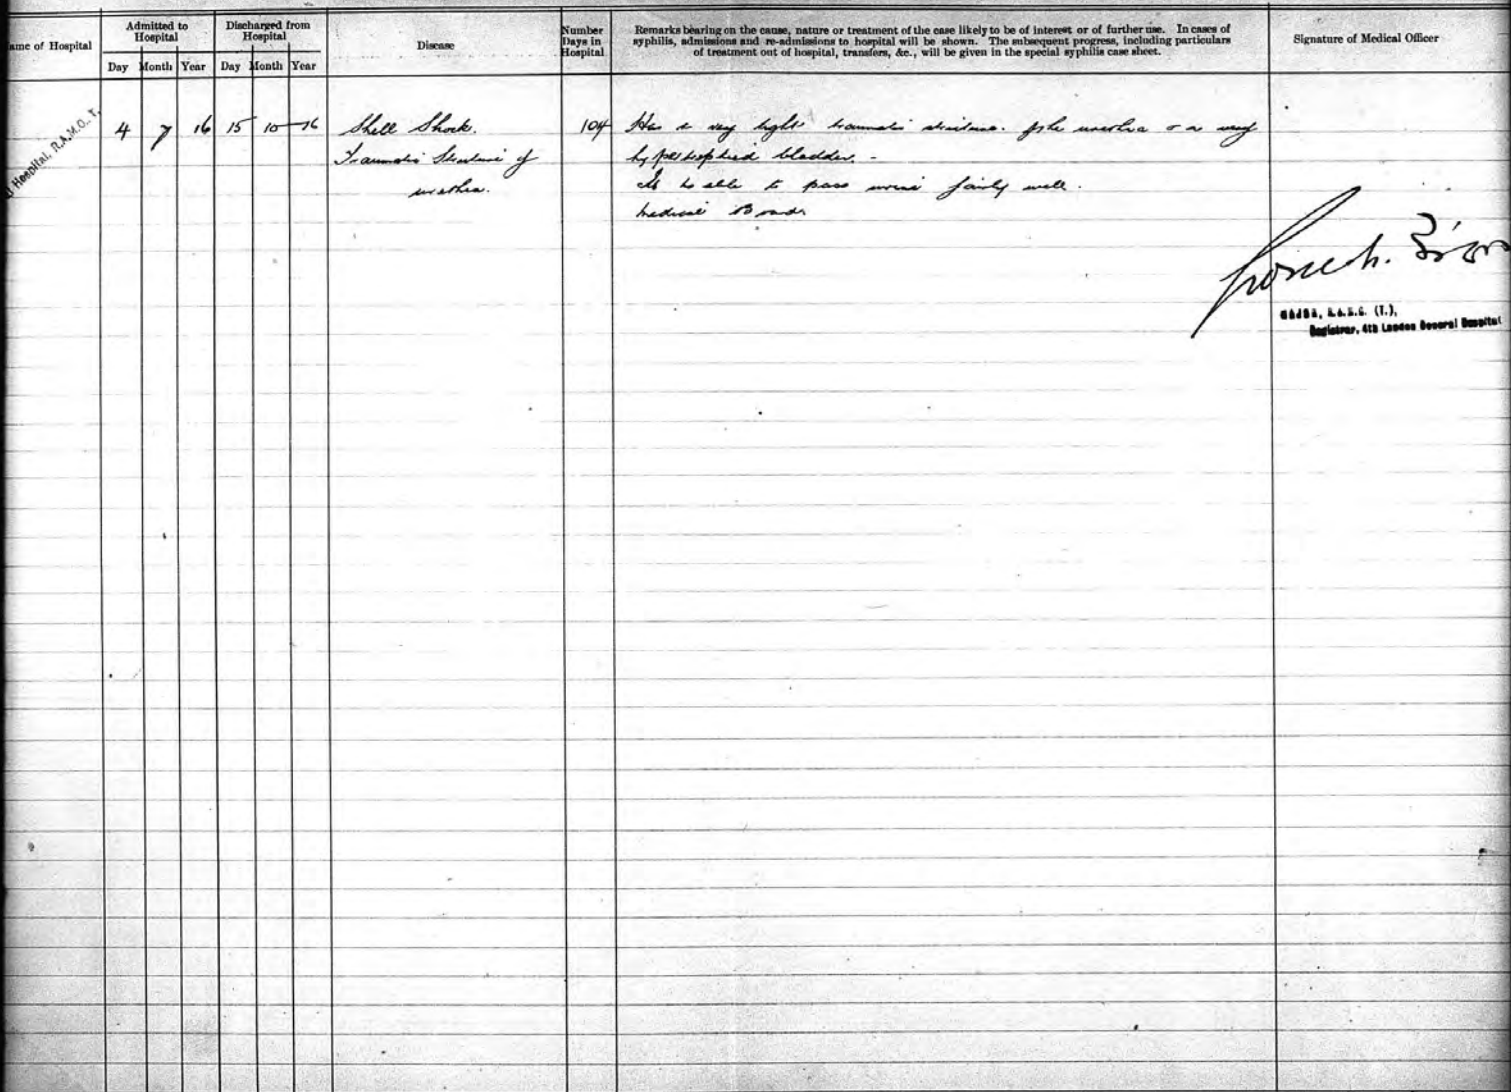 ame of Hospital
Admitted to
Hospital
Day Month Year
Discharged from
Hospital
Day Month Year
Disease
Number
Days in
Hospital
Remarks bearing on the cause, nature or treatment of the case likely to be of interest or of further use. In cases of
syphilis, admissions and re-admissions to hospital will be shown. The subsequent progress, including particulars
of treatment out of hospital, transfers, &c., will be given in the special syphilis case sheet.
Signature of Medical Officer
Hospital, R.A.M.C. T.
4 7 16 15 10 16
Shell Shock.
Traumatic Stricture of
urethra.
104
Has a very tight traumatic stricture. of the urethra & a very
hypertrophied bladder. -
Is to able to pass urine fairly well.
Medical Board
(T.),
Registrar, 4th London General Hospital